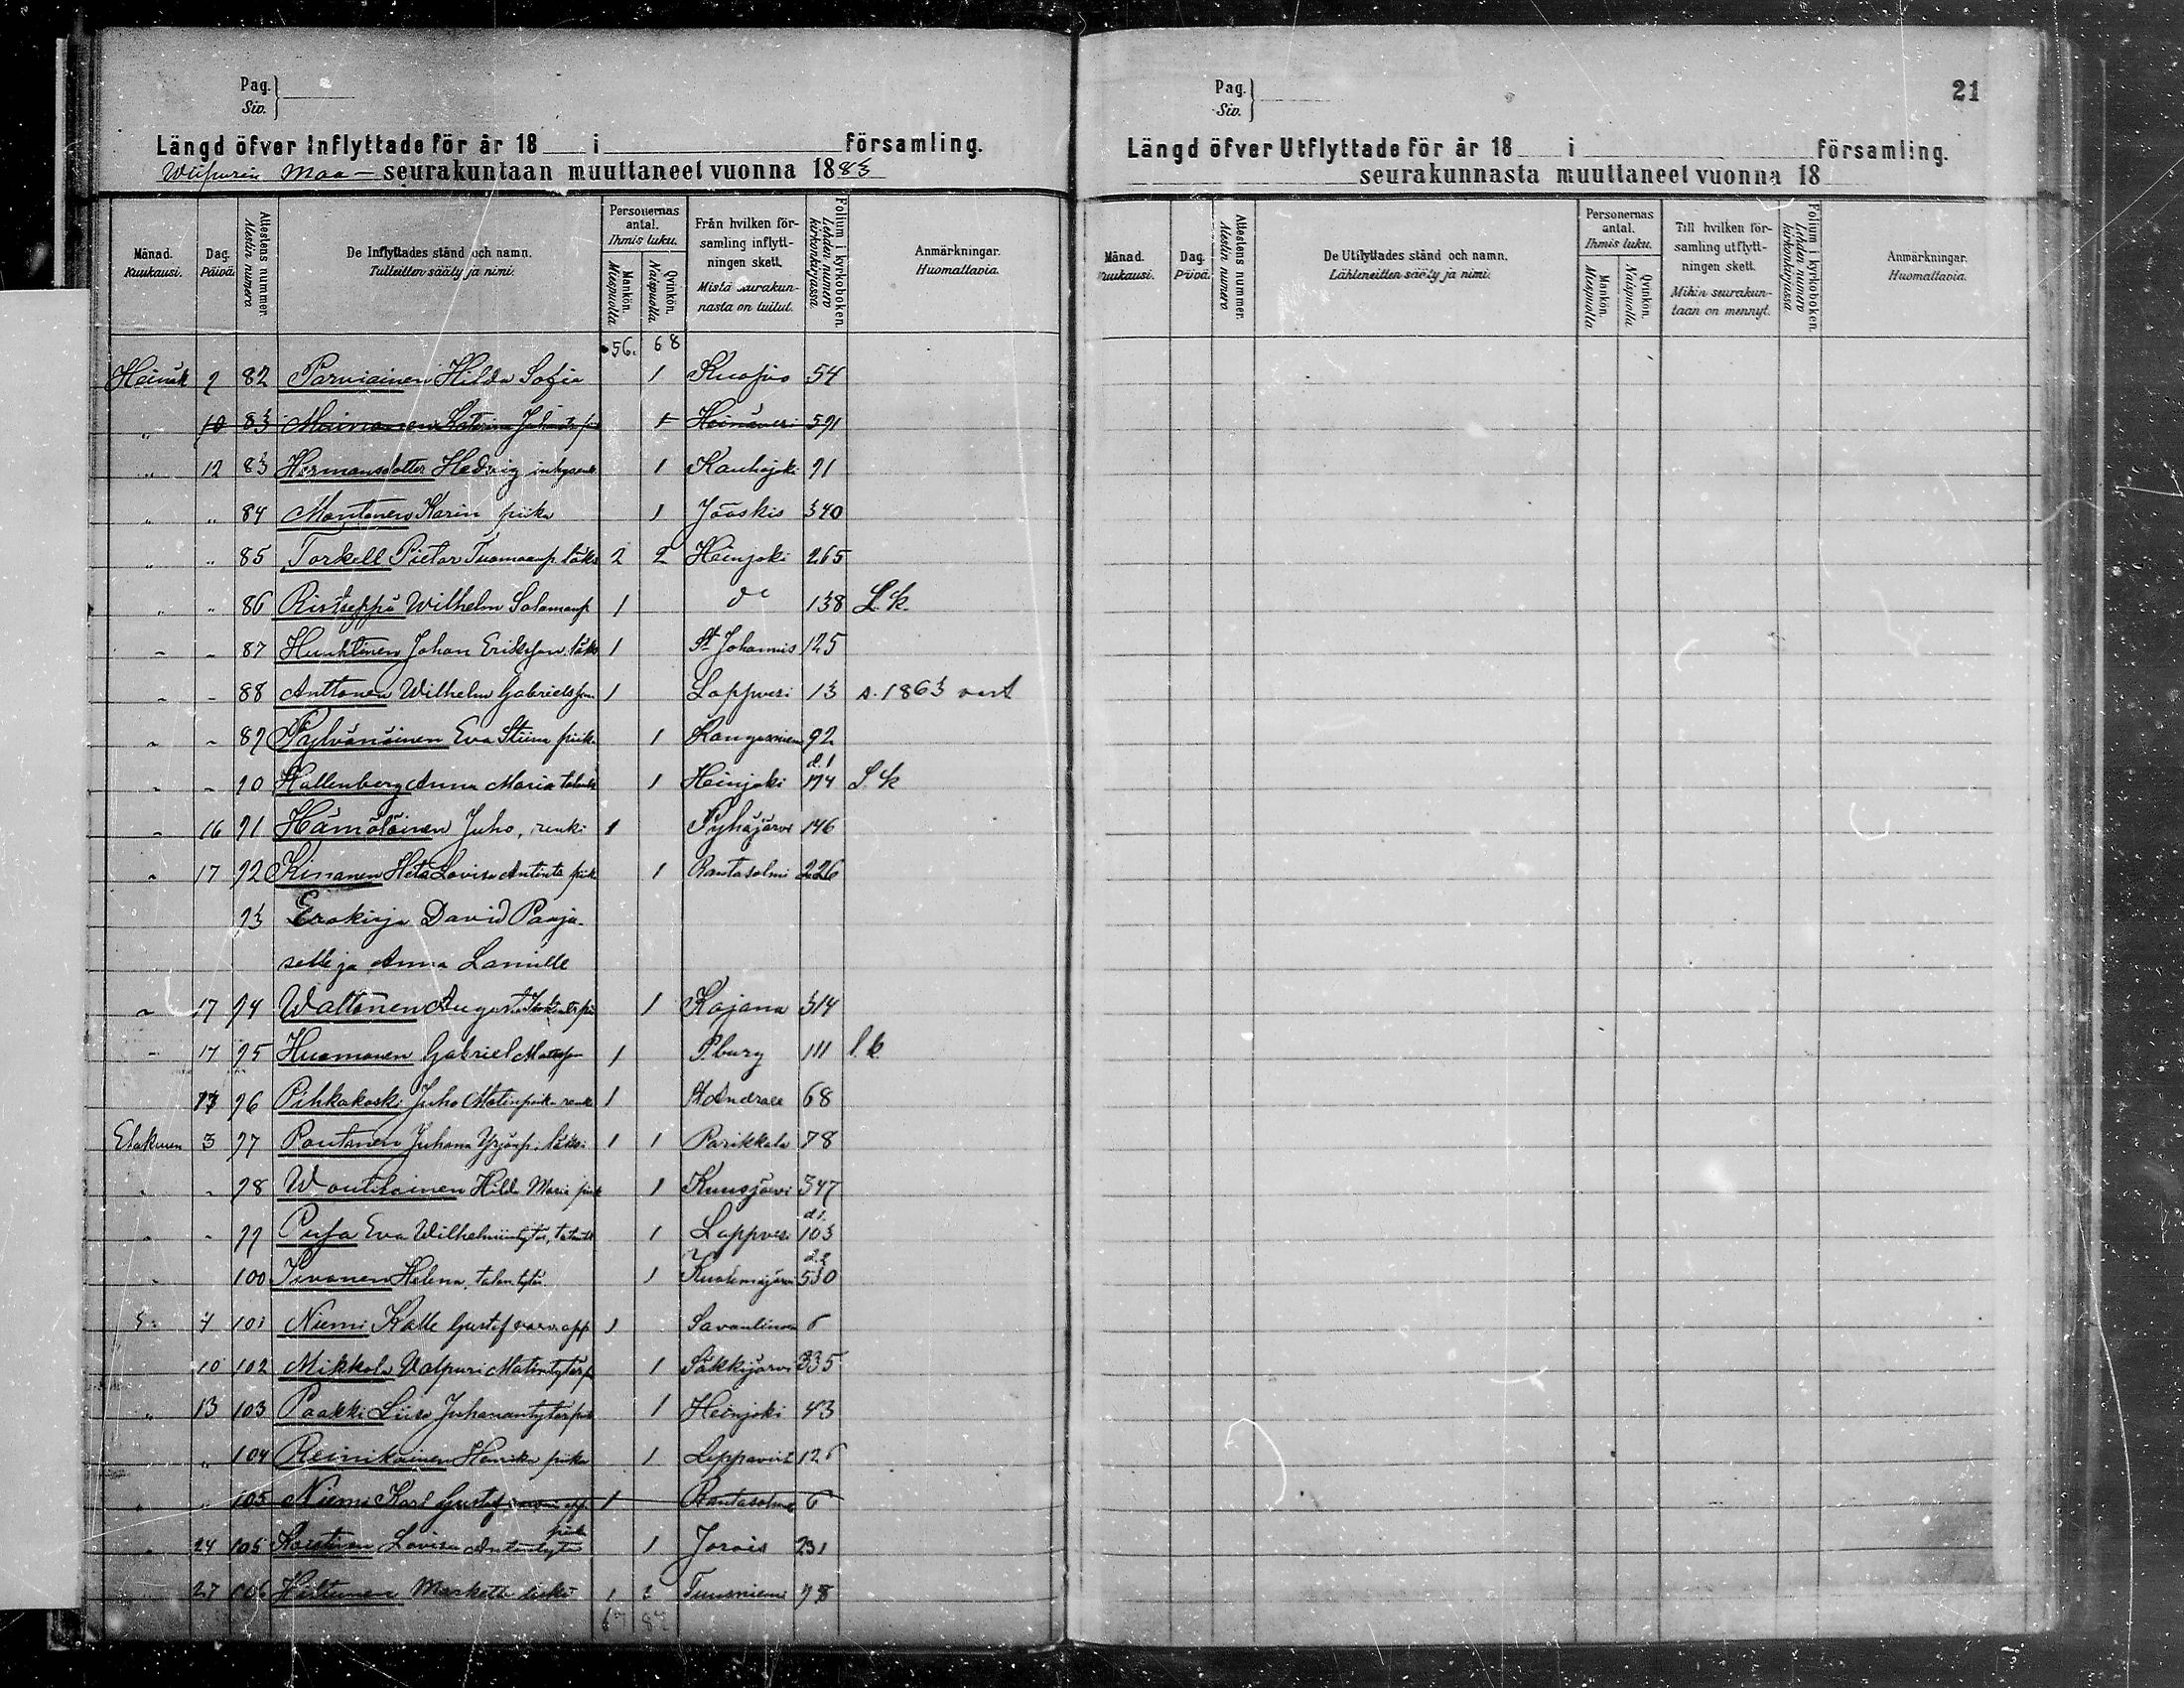 Pag.
Siv.
Längd öfver Inflyttade för år 18 i församling.
Wiipurin Maa - seurakuntaan muuttaneet vuonna 1883
Månad. Kuukausi. Dag. Päivä. Attestens nummer. Alestin numero De Inflyttades stånd och namn. Tulleitten sääty ja nimi. Personernas antal. Ihmis luku. Mankön. Miespuolia Qvinkön. Naispuolia Från hvilken församling inflyttningen skett. Mistä seurakunnasta on tullut. Folium i kyrkoboken. Lehden numero kirkonkirjassa. Anmärkningar. Huomattavia.
56. 68
Heinäk 9 82 Parviainen Hilda Sofia 1 Kuopio 54
" 10 83 Katarina 1 Heinävesi 591
" 12 83 Hermansdotter Hedvig 1 Kauhajoki 91
" " 84 Montonen Karin piika 1 Jääskis 340
" " 85 Torkell Pietar Tuomaanp. läks 2 2 Heinjoki 265
" " 86 Ristseppä Wilhelm Salamanp 1 dº 138 L. k.
" " 87 Huuhtinen Johan Eriksson läks 1 St Johannis 125
" " 88 Anttonen Wilhelm Gabrielsson 1 Lappvesi 13 s. 1863
" " 89 Pylvänäinen Eva Stiina piik. 1 Kangasniemi 92
" " 90 Hallenberg Anna Maria 1 Heinjoki d.1 174 L. k
" 16 91 Hämäläinen Juho, renki 1 Pyhäjärvi 146
" 17 92 Kinanen Heta Lovisa Antint. piik 1 Rantasalmi 226
93 Erokirja David Paaja-
selle ja Anna Lamille
" 17 94 Waltonen Augusta 1 Kajana 314
" 17 95 Huomonen Gabriel 1 P.burg 111 l. k.
96 Pihkakoski Juho Matinpoika renki 1 St Andreae 68
Elokuun 3 97 Poutanen Juhana Yrjönp. läks. 1 1 Parikkala 78
" " 98 Woutilainen Hilda Maria piik 1 Kuusjärvi 347
" " 99 Pusa Eva Wilhelmintytär, 1 Lappvesi d1. 103
" 100 Isvonen Helena, talontytär. 1 Kuolemajärvi d.2 530
7 101 Niemi Kalle Gustaf 1 Savonlinna 6
10 102 Mikkola Valpuri Matintytär p 1 Säkkijärvi 335
" 13 103 Paakki Liisa Juhanantytär piik 1 Heinjoki 43
" 104 Reinikainen Henrika piika 1 Leppävirt 126
" " 105 Niemi Karl Gustaf 1 Rantasalmi 6
" 24 105 Lovisa Antintytär piika 1 Jorois 231
27 106 Hiltunen Marketta leski 1 2 Tuusniemi 98
67 82
Pag.
Siv.
21
Längd öfver Utflyttade för år 18 i församling.
seurakunnasta muuttaneet vuonna 18
Månad. Kuukausi. Dag. Päivä. Attestens nummer. Alestin numero De Utflyttades stånd och namn. Lähteneitten sääty ja nimi. Personernas antal. Ihmis luku. Mankön. Miespuolia Qvinkön. Naispuolia Till hvilken församling utflyttningen skett. Mihin seurakuntaan on mennyt. Folium i kyrkoboken. Lehden numero kirkonkirjassa Anmärkningar. Huomattavia.